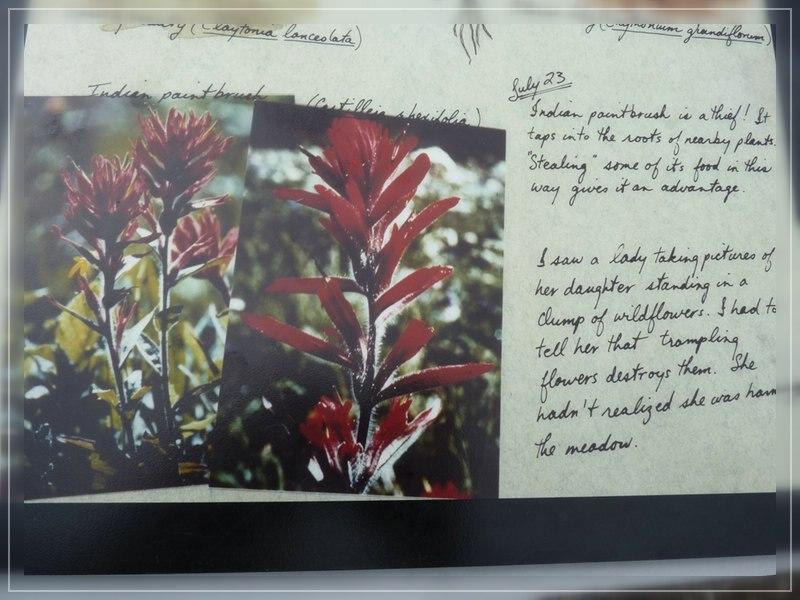 (Claytonia lanceolata)
grandiflorum)
Indian paintbrush (Castilleja rhexifolia)
July 23
Indian paintbrush is a thief! It
taps into the roots of nearby plants.
"Stealing" some of its food in this
way gives it an advantage.
I saw a lady taking pictures of
her daughter standing in a
clump of wildflowers. I had to
tell her that trampling
flowers destroys them. She
hadn't realized she was harm
the meadow.